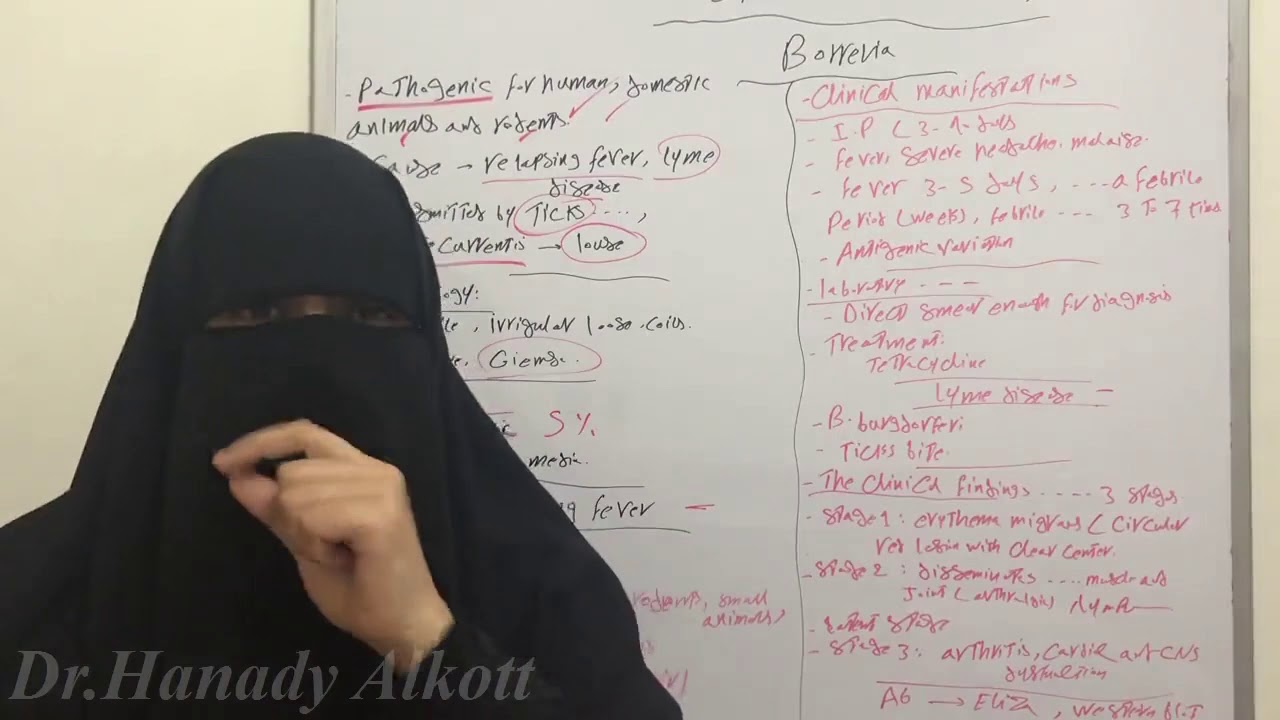 Borrelia
- Pathogenic for human, domestic
animals and rodents.
relapsing fever, lyme
disease
by Ticks ...,
→ louse
, irrigular loose coils.
Giemsa.
5%
media.
fever -
rodents, small
animals,
- Clinical manifestations
- I.P ( 3-
- fever, severe headache, malaise.
- fever 3-5 days, --- afebrile
Period (weeks), febrile --- 3 To 7 times
- Antigenic variation
- laboratory ---
- Direct smear enough for diagnosis
- Treatment:
Tetracycline
lyme disease -
- B. burgdorferi
- Tickss bite.
- The Clinical findings .... 3 stages
- Stage 1: erythema migrans ( Circular
red lesion with clear center.
- Stage 2: disseminates .... muscle and
Joint (arthralgia)
- latent stage
- Stage 3: arthritis, Cardiac and CNS
dysfunction
Ab → Eliza, western blot
Dr.Hanady Alkott